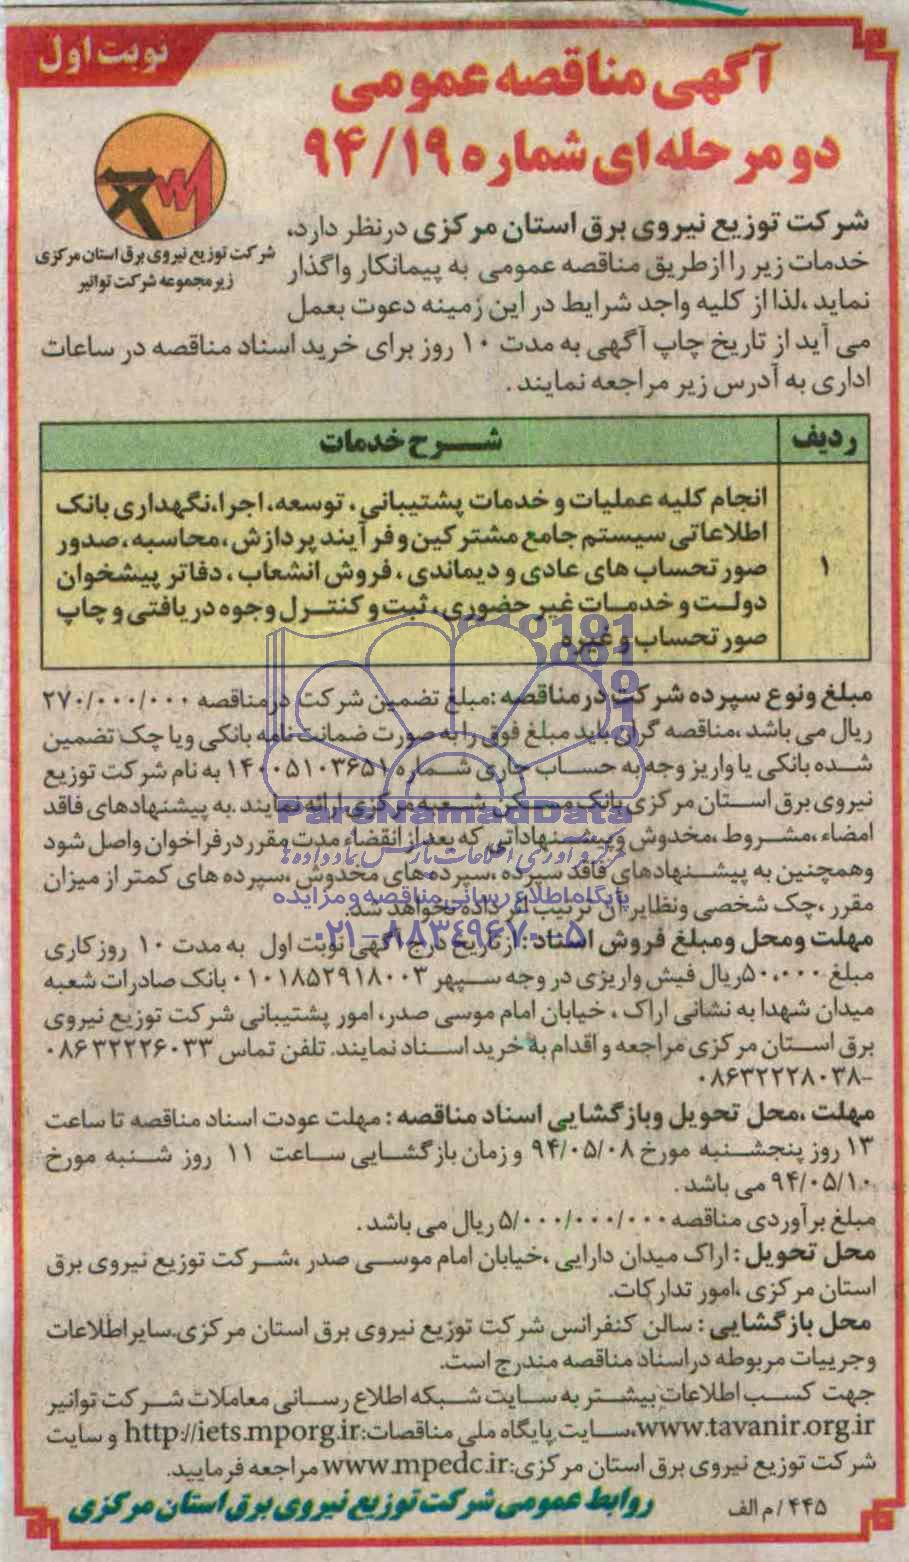 نوبت اول
آگهی مناقصه عمومی
دو مرحله ای شماره ۹۴/۱۹
شرکت توزیع نیروی برق استان مرکزی
زیرمجموعه شرکت توانیر
شرکت توزیع نیروی برق استان مرکزی درنظر دارد،
خدمات زیر را ازطریق مناقصه عمومی به پیمانکار واگذار
نماید ،لذا از کلیه واجد شرایط در این زمینه دعوت بعمل
می آید از تاریخ چاپ آگهی به مدت ۱۰ روز برای خرید اسناد مناقصه در ساعات
اداری به آدرس زیر مراجعه نمایند .
ردیف شـــرح خدمات
۱
انجام کلیه عملیات و خدمات پشتیبانی ، توسعه، اجرا،نگهداری بانک
اطلاعاتی سیستم جامع مشترکین و فرآیند پردازش ،محاسبه ،صدور
صورتحساب های عادی و دیماندی ، فروش انشعاب ، دفاتر پیشخوان
دولت و خدمـات غیر حضوری ، ثبت و کنتـرل وجوه دریافتی و چاپ
صورتحساب و غیره
مبلغ ونوع سپرده شرکت درمناقصه :مبلغ تضمین شرکت درمناقصه ۲۷۰/۰۰۰/۰۰۰
ریال می باشد ،مناقصه گران باید مبلغ فوق را به صورت ضمانت نامه بانکی ویا چک تضمین
شده بانکی یا واریز وجه به حساب جاری شماره ۱۴۰۰۵۱۰۳۶۵۱ به نام شرکت توزیع
نیروی برق استان مرکزی بانک مسکن شعبه مرکزی ارائه نمایند .به پیشنهادهای فاقد
امضاء ،مشروط ،مخدوش و پیشنهاداتی که بعد از انقضاء مدت مقرر در فراخوان واصل شود
وهمچنین به پیشنهادهای فاقد سپرده ،سپرده های مخدوش ،سپرده های کمتر از میزان
مقرر ،چک شخصی ونظایر آن ترتیب اثر داده نخواهد شد.
مهلت ومحل ومبلغ فروش اسناد : از تاریخ درج آگهی نوبت اول به مدت ۱۰ روز کاری
مبلغ ۵۰،۰۰۰ریال فیش واریزی در وجه سپهر ۰۱۰۱۸۵۲۹۱۸۰۰۳ بانک صادرات شعبه
میدان شهدا به نشانی اراک ، خیابان امام موسی صدر، امور پشتیبانی شرکت توزیع نیروی
برق استان مرکزی مراجعه و اقدام به خرید اسناد نمایند. تلفن تماس ۰۸۶۳۲۲۲۶۰۳۳
-۰۸۶۳۲۲۲۸۰۳۸
مهلت ،محل تحویل وبازگشایی اسناد مناقصه : مهلت عودت اسناد مناقصه تا ساعت
۱۳ روز پنجشنبه مورخ ۹۴/۰۵/۰۸ و زمان بازگشایی ساعت ۱۱ روز شنبه مورخ
۹۴/۰۵/۱۰ می باشد .
مبلغ برآوردی مناقصه ۵/۰۰۰/۰۰۰/۰۰۰ ریال می باشد .
محل تحویل : اراک میدان دارایی ،خیابان امام موسی صدر ،شرکت توزیع نیروی برق
استان مرکزی ،امور تدارکات.
محل بازگشایی : سالن کنفرانس شرکت توزیع نیروی برق استان مرکزی.سایراطلاعات
وجزییات مربوطه دراسناد مناقصه مندرج است.
جهت کسب اطلاعات بیشتر به سایت شبکه اطلاع رسانی معاملات شرکت توانیر
www.tavanir.org.ir،سایت پایگاه ملی مناقصات:http://iets.mporg.ir و سایت
شرکت توزیع نیروی برق استان مرکزی:www.mpedc.ir مراجعه فرمایید.
۴۴۵/ م الف
روابط عمومی شرکت توزیع نیروی برق استان مرکزی
ParsNamadData
پایگاه اطلاع رسانی مناقصه و مزایده
۰۲۱-۸۸۳۴۹۶۷۰-۵